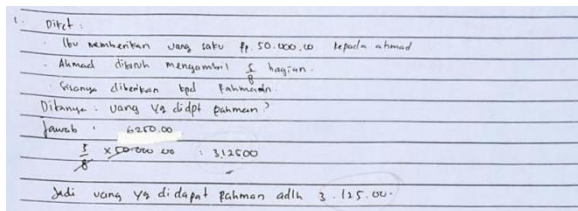 1. Diket :
. Ibu memberikan uang saku Rp. 50.000,00 kepada ahmad
. Ahmad disuruh mengambil 5/8 bagian.
. Sisanya diberikan kpd Rahman.
Ditanya : uang yg didpt Rahman ?
Jawab :
6250.00
5/8 x 50.000 00 : 3,12500
Jadi uang yg didapat Rahman adlh 3.125.00.